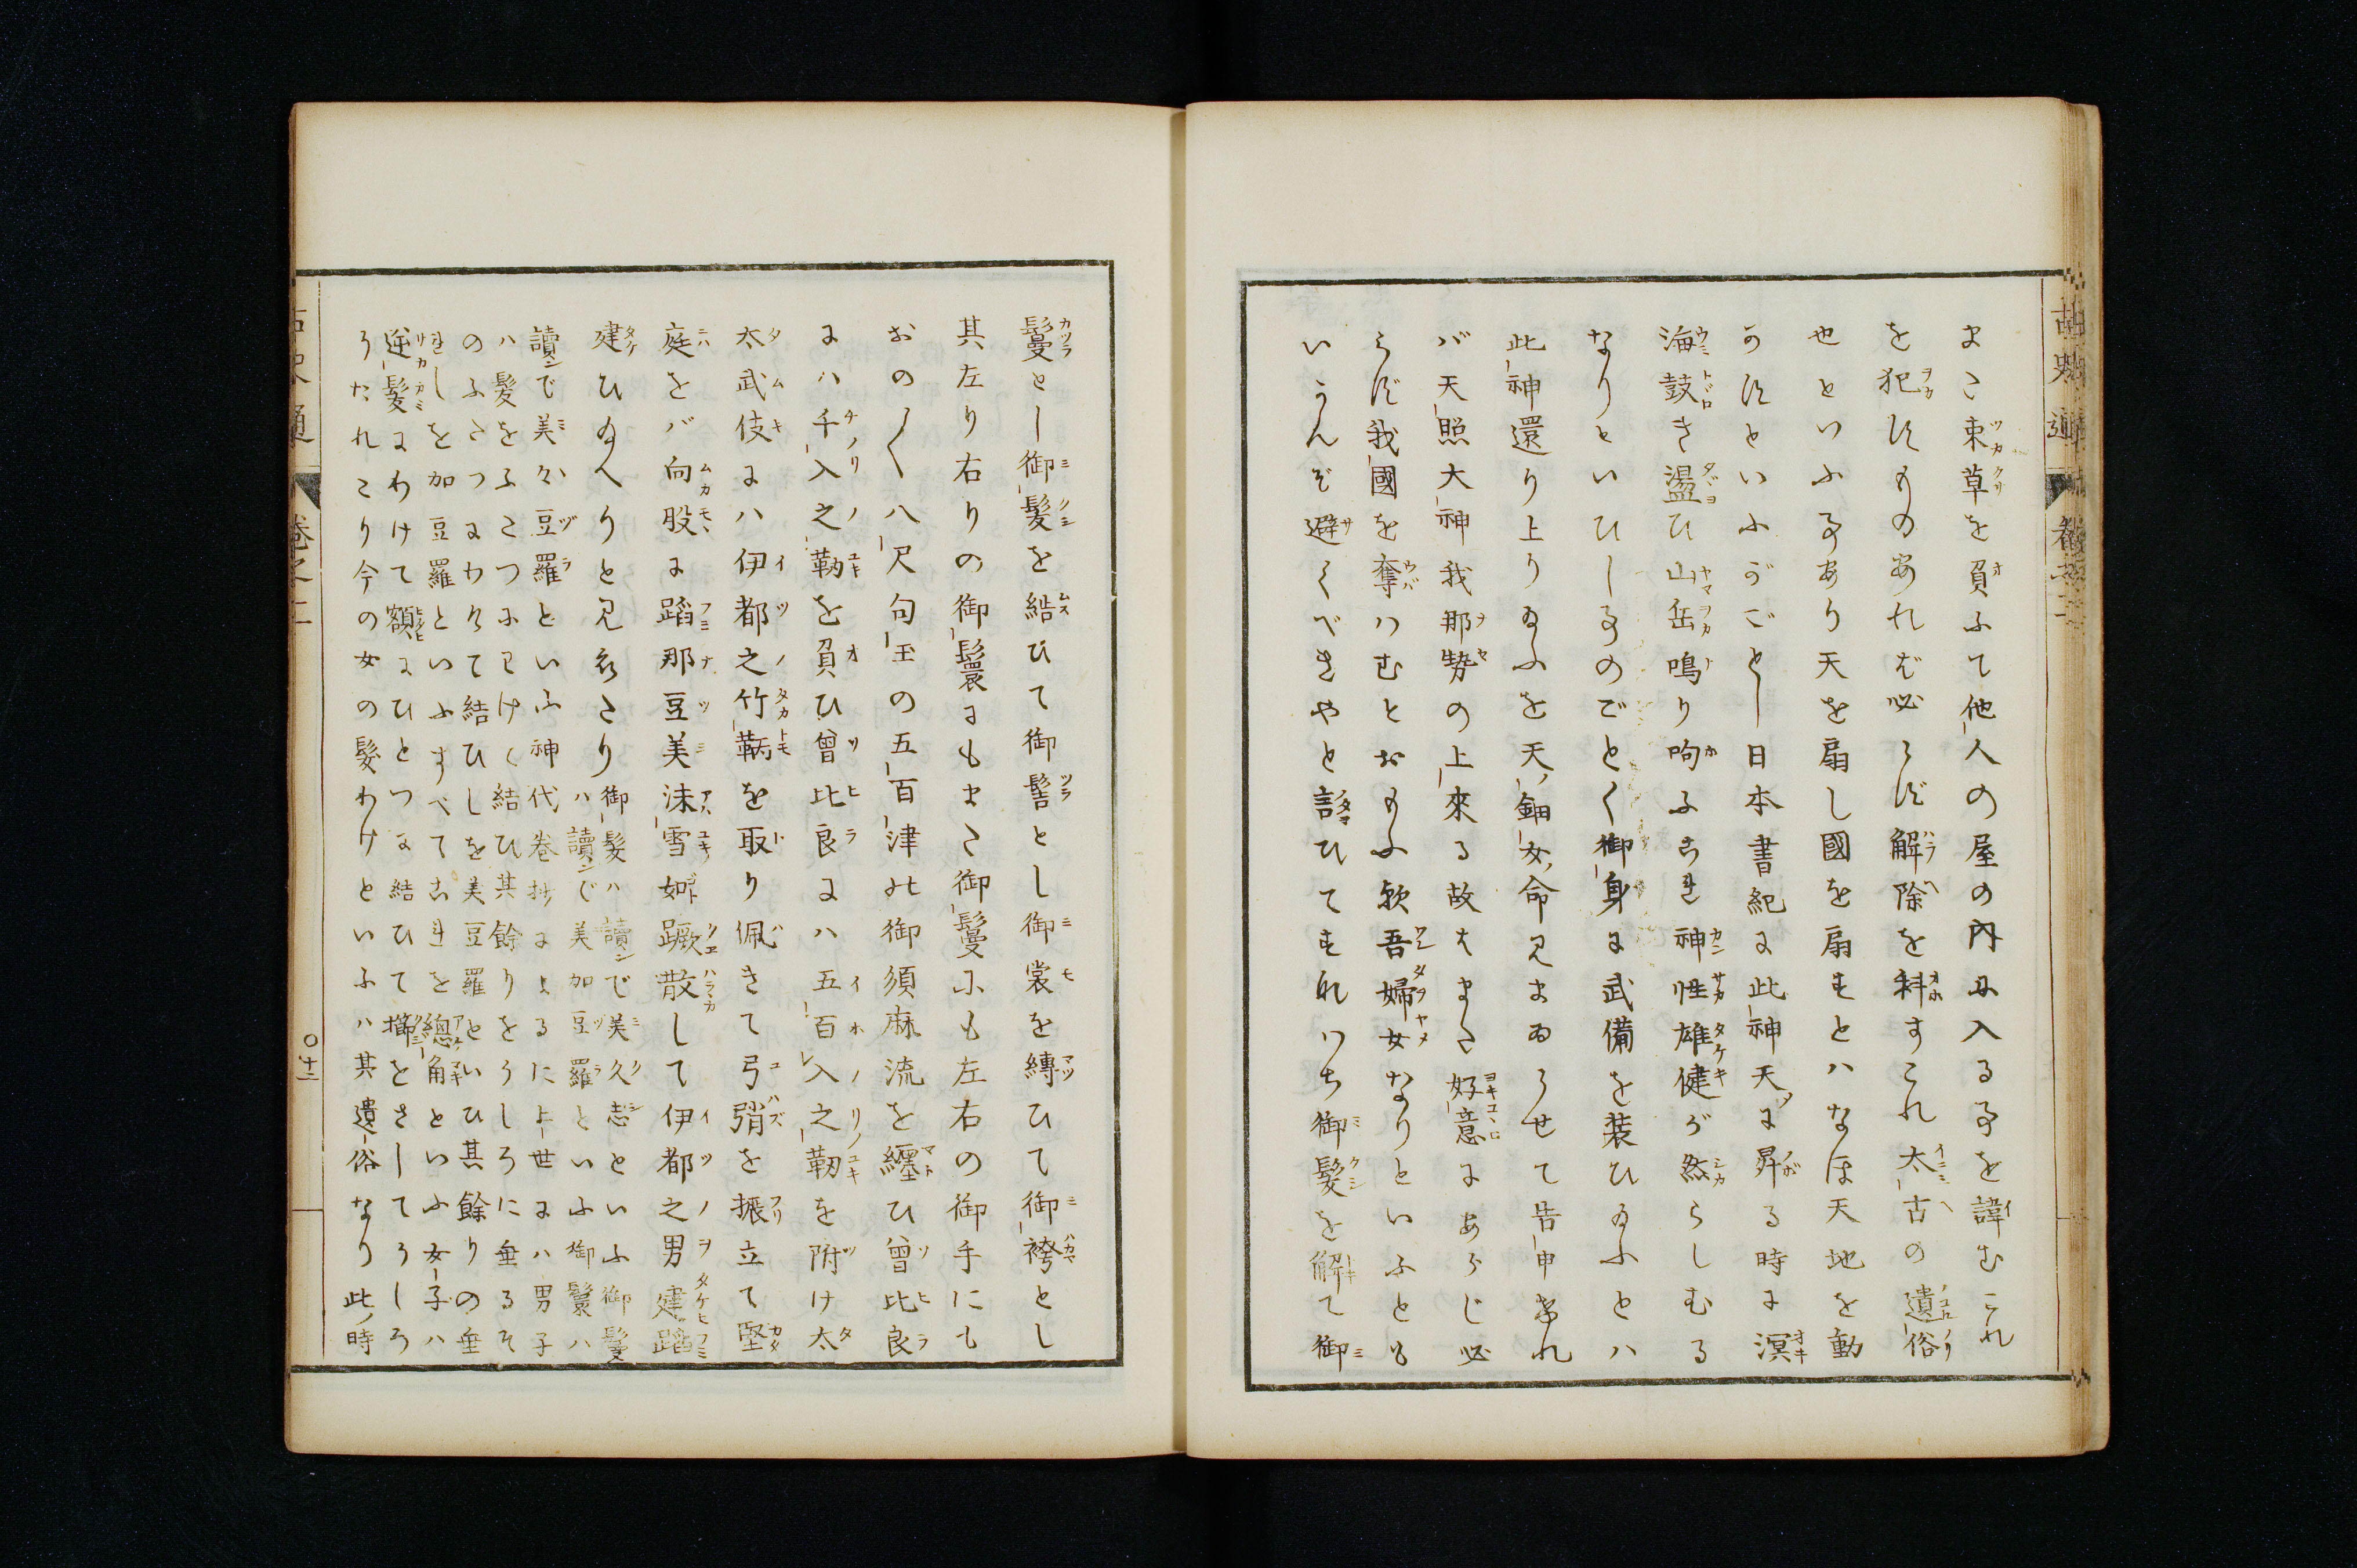 また束草を負ふて他人の屋の内に入る事を諱むこれ
を犯すものあれば必らず解除を科すこれ太古の遺俗
也といふ事あり天を扇し國を扇すとハなほ天地を動
かすといふがごとし日本書紀に此神天に昇る時に溟
海鼓き盪ひ山岳鳴り呴ふこれ神性雄健が然らしむる
なりといひし事のごとく御身に武備を装ひ給ふとハ
此神還り上り給ふを天ノ鈿女ノ命見まゐらせて告申され
バ天照大神我那勢の上來る故はまた好意にあらじ必
らず我國を奪ハむとおもふ歟吾婦女なりといふとも
いかんぞ避くべきやと詻ひてすなハち御髮を解て御
鬘とし御髮を結ひて御髻とし御裳を縛ひて御袴とし
其左り右りの御鬟にもまた御鬘にも左右の御手にも
おの〳〵八尺句玉の五百津の御須麻流を纒ひ曾比良
にハ千入之靭を負ひ曾比良にハ五百入之靭を附け太
太武伎にハ伊都之竹鞆を取り佩きて弓弰を振立て堅
庭をバ向股に蹈那豆美沫雪如蹶散して伊都之男建蹈
建ひ給へりと見えたり
御髮ハ讀ンで美久志といふ御鬘
ハ讀ンで美加豆羅といふ御鬟ハ
讀ンで美々豆羅といふ神代巻抄によるに上世にハ男子
ハ髮をふたつにわけて結ひ其餘りをうしろに垂るそ
のふたつにわけて結ひしを美豆羅といひ其餘りの垂
れしを加豆羅といふすべてこれを總角といふ女子ハ
逆髮にわけて額にひとつに結ひて櫛をさしてうしろ
うたれたり今の女の髮わけといふハ其遺俗なり此ノ時
古史通
巻之二
〇十二